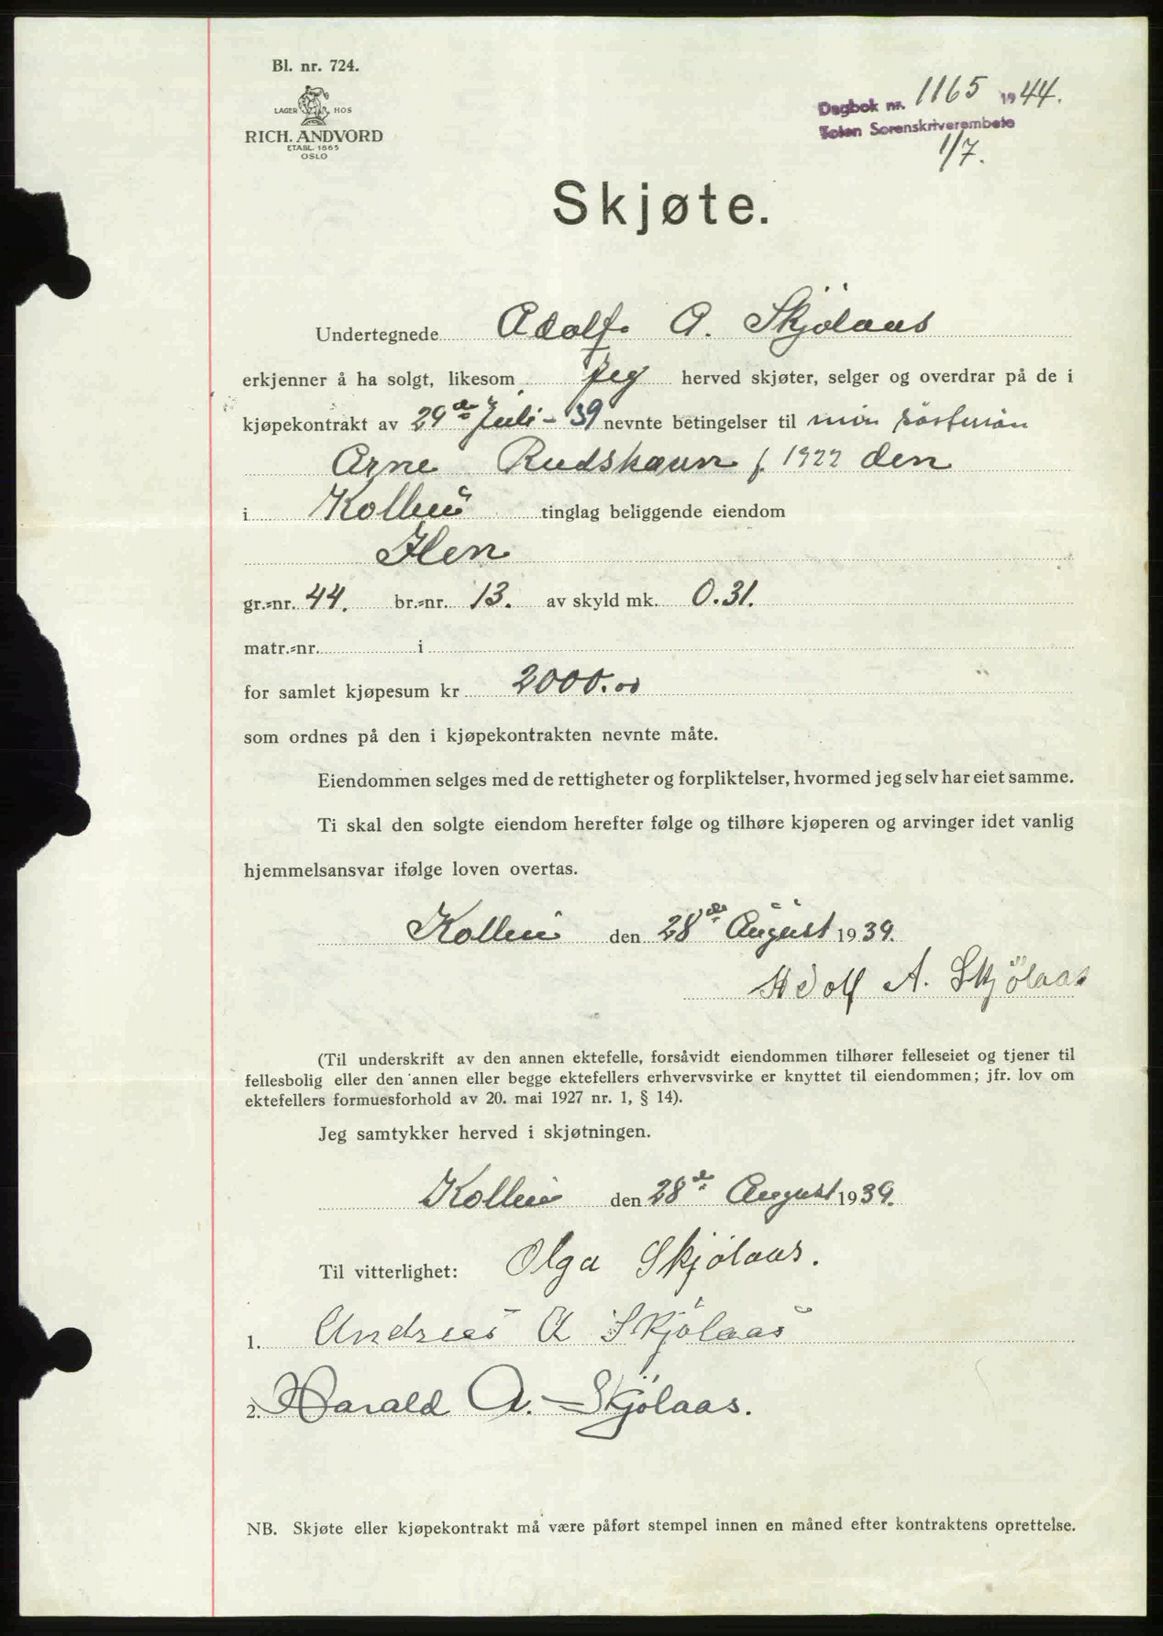 Bl. nr. 724.
LAGER HOS
RICH. ANDVORD
ETABL. 1865
OSLO
Dagbok nr. 1165 1944.
Toten Sorenskriverembete
1/7.
Skjøte.
Undertegnede Adolf A. Skjölaas
erkjenner å ha solgt, likesom jeg herved skjøter, selger og overdrar på de i
kjøpekontrakt av 29de Juli - 39 nevnte betingelser til min
Arne Rudshaun f. 1922 den
i Kolbu tinglag beliggende eiendom
gr.=nr. 44. br.=nr. 13. av skyld mk. 0.31.
matr.=nr. i
for samlet kjøpesum kr 2000.00
som ordnes på den i kjøpekontrakten nevnte måte.
Eiendommen selges med de rettigheter og forpliktelser, hvormed jeg selv har eiet samme.
Ti skal den solgte eiendom herefter følge og tilhøre kjøperen og arvinger idet vanlig
hjemmelsansvar ifølge loven overtas.
Kolbu den 28de August 1939.
Adolf A. Skjölaas
(Til underskrift av den annen ektefelle, forsåvidt eiendommen tilhører felleseiet og tjener til
fellesbolig eller den annen eller begge ektefellers erhvervsvirke er knyttet til eiendommen; jfr. lov om
ektefellers formuesforhold av 20. mai 1927 nr. 1, § 14).
Jeg samtykker herved i skjøtningen.
Kolbu den 28de August 1939.
Til vitterlighet: Olga Skjölaas.
1. Andreas A Skjölaas
2. Harald A. Skjölaas.
NB. Skjøte eller kjøpekontrakt må være påført stempel innen en måned efter kontraktens oprettelse.